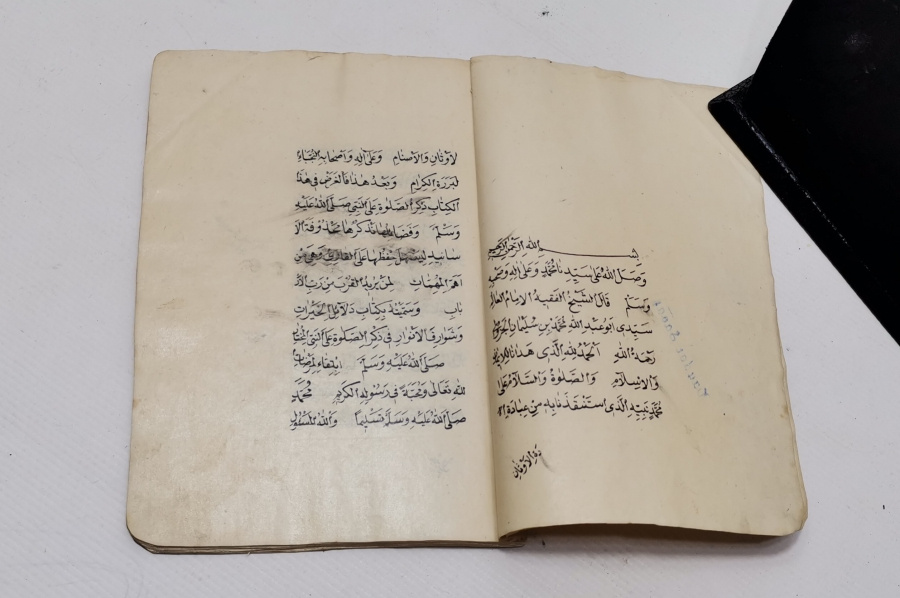 بسم الله الرحمن الرحيم
وَصَلَ اللهُ عَلى سَيِّدِنَا مُحَمَّدٍ وَعَلى الِهِ وَصَحْبِهِ
وَسَلَّمَ قَالَ الشَّيْخُ الفَقِيهُ الاِمَامُ العَالِم
سَيِّدِي اَبُو عَبْدِ اللهِ مُحَمَّدُ بْنِ سُلَيْمَانَ الجزولى
رَحِمَهُ اللهِ اَلْحَمْدُ لِلّهِ الَّذِي هَدَانَا للايمان
وَالاِسْلَامِ وَالصَّلوةُ وَالسَّلَامُ عَلى
مُحَمَّدٍ نَبِيِّهِ الَّذِي اسْتَنْقَذَنَا بِهِ مِنْ عِبَادَةِ الا
دَةِ الاَوْثَانِ
لاَوْثَانِ وَالاَصْنَامِ وَعَلى الِهِ وَاَصْحَابِهِ النُّجَبَاءِ
لبَرَرَةِ الكِرَامِ وَبَعْدُ هٰذَا فَالغَرَضُ فِي هٰذَا
الكِتَابِ ذِكْرُ الصَّلوةِ عَلَى النَّبِيِّ صَلَّى اللهُ عَلَيْهِ
وَسَلَّمَ وَفَضَائِلِهَا نَذْكُرُهَا مَحْذُوفَةَ الاَ
سَانِيدِ لِيَسْهُلَ حِفْظُهَا عَلَى القَارِئِ وَهِيَ مِنْ
اَهَمِّ المُهِمَّاتِ لِمَنْ يُرِيدُ القُرْبَ مِنْ رَبِّ الاَرْ
بَابِ وَسَمَّيْتُهُ بِكِتَابِ دَلَائِلِ الخَيْرَاتِ
وَشَوَارِقِ الاَنْوَارِ فِي ذِكْرِ الصَّلوةِ عَلَى النَّبِيِّ المختار
صَلَّى اللهُ عَلَيْهِ وَسَلَّمَ ابْتِغَاءً لِمَرْضَاتِ
للهِ تَعَالى وَمَحَبَّةً فِي رَسُولِهِ الكَرِيمِ مُحَمَّدٍ
صَلَّى اللهُ عَلَيْهِ وَسَلَّمَ تَسْلِيمًا وَاللهُ المَسْئُولُ